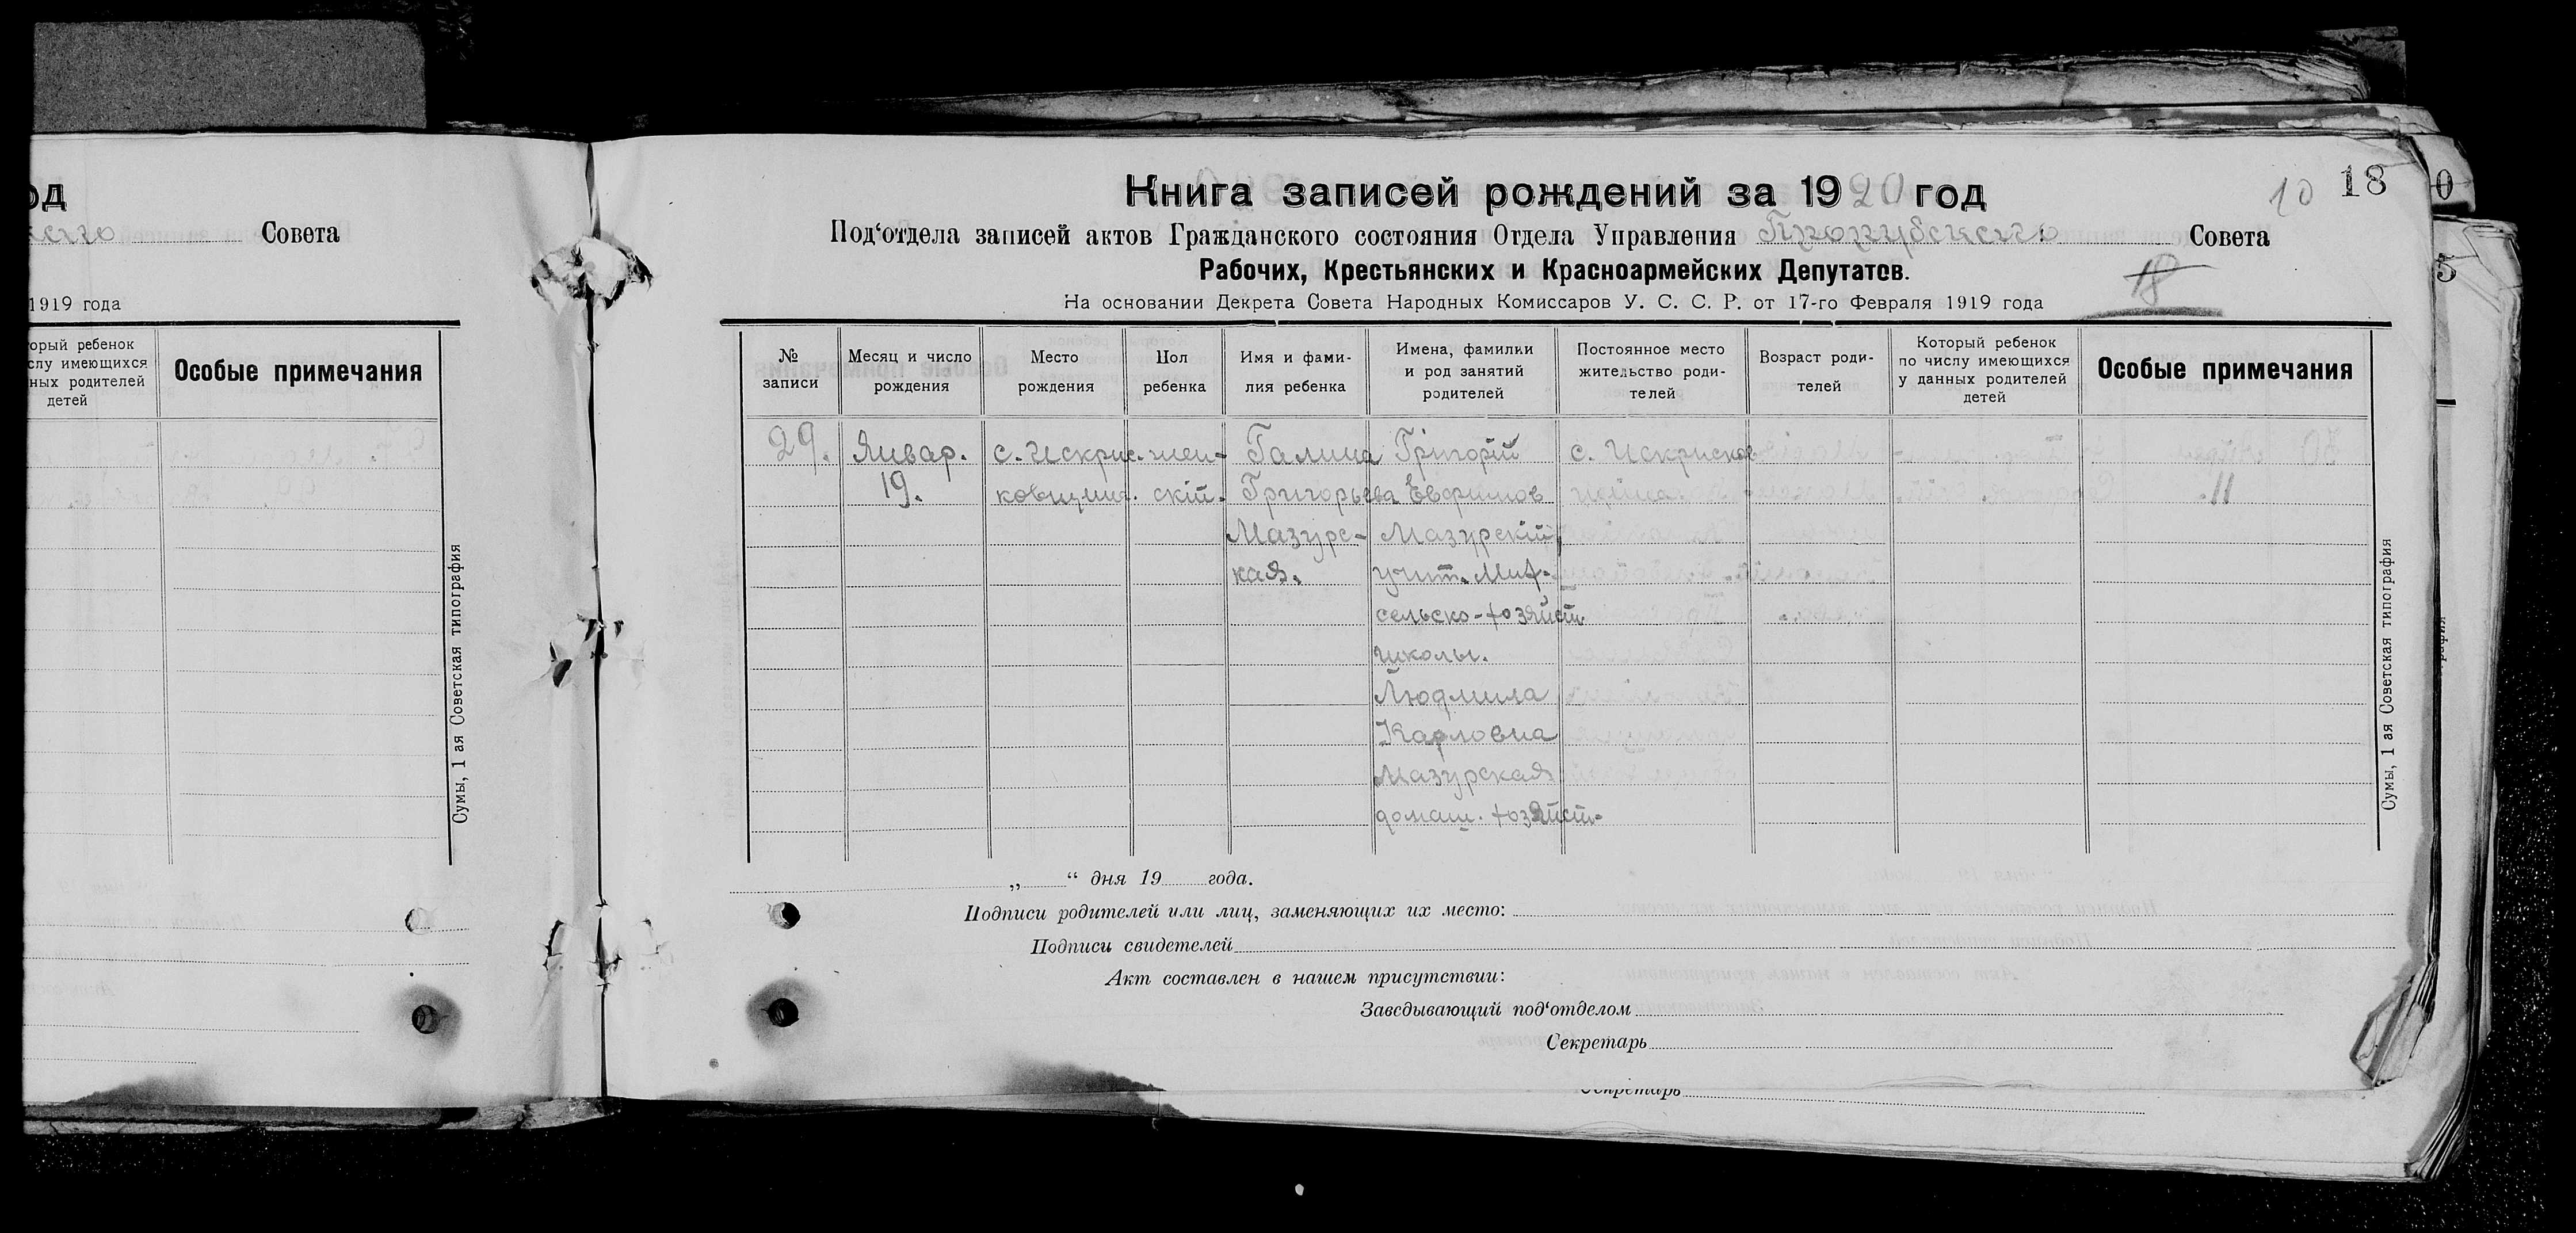 од
Совета
1919 года
орый ребенок
слу имеющихся
ных родителей
детей
Особые примечания
Сумы, 1 ая Советская типография
10 18
Книга записей рождений за 1920 год
Под‘отдела записей актов Гражданского состояния Отдела Управления Совета
Рабочих, Крестьянских и Красноармейских Депутатов.
18
На основании Декрета Совета Народных Комиссаров У. С. С. Р. от 17-го Февраля 1919 года
№ записи
Месяц и число рождения
Место рождения
Пол ребенка
Имя и фами-
лия ребенка
Имена, фамилки
и род занятий
родителей
Постоянное место
жительство роди-
телей
Возраст роди-
телей
Который ребенок
по числу имеющихся
у данных родителей
детей
Особые примечания
29. Январ. с. Искрис- жен- Галина Григорій с. Искрисков
19. ковщина. скій. Григорьева Евфимов щина.
Мазурс- Мазурскій
кая. учит. Миф.
сельско-хозяйст.
школы.
Людмила
Карловна
Мазурская
домаш. хозяйст.
Сумы, 1 ая Советская типография
„ “ дня 19 года.
Подписи родителей или лиц, заменяющих их место:
Подписи свидетелей
Акт составлен в нашем присутствии:
Заведывающий под‘отделом
Секретарь
Секретарь
0
5